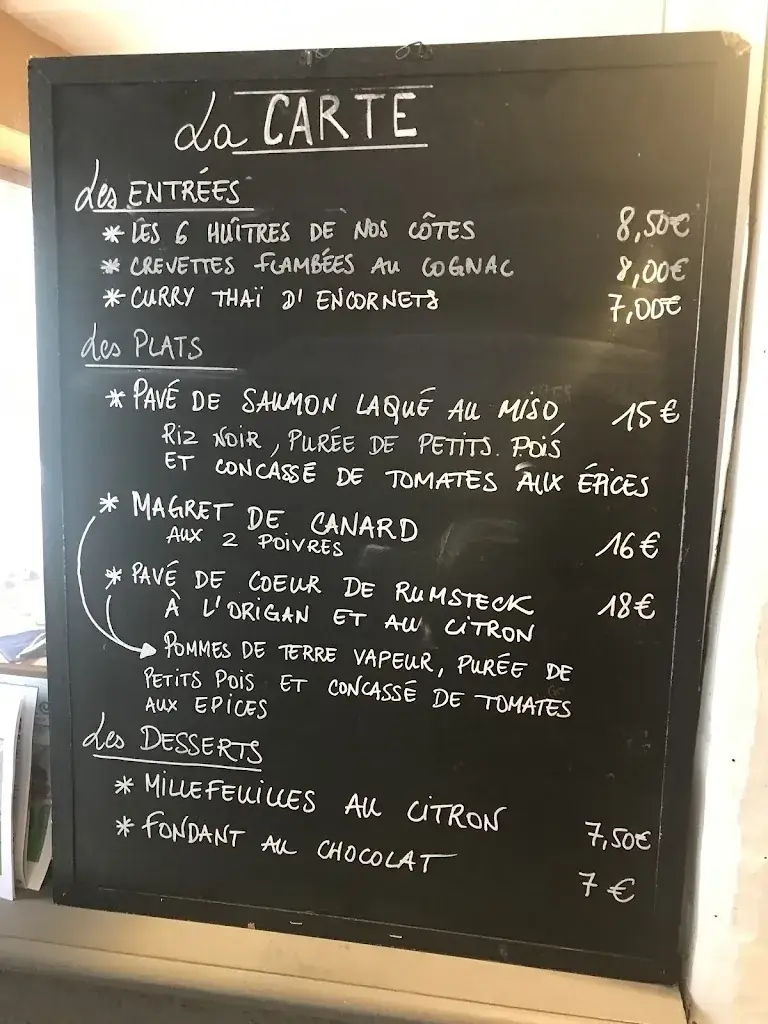 La CARTE
Les ENTRÉES
* LES 6 HUÎTRES DE NOS CÔTES 8,50€
* CREVETTES FLAMBÉES AU COGNAC 8,00€
* CURRY THAÏ D'ENCORNETS 7,00€
Les PLATS
* PAVÉ DE SAUMON LAQUÉ AU MISO, 15€
RIZ NOIR, PURÉE DE PETITS. POIS
ET CONCASSÉ DE TOMATES AUX ÉPICES
* MAGRET DE CANARD
AUX 2 POIVRES 16€
* PAVÉ DE COEUR DE RUMSTECK 18€
À L'ORIGAN ET AU CITRON
POMMES DE TERRE VAPEUR, PURÉE DE
PETITS POIS ET CONCASSÉ DE TOMATES
AUX EPICES
Les DESSERTS
* MILLEFEUILLES AU CITRON 7,50€
* FONDANT AU CHOCOLAT 7 €